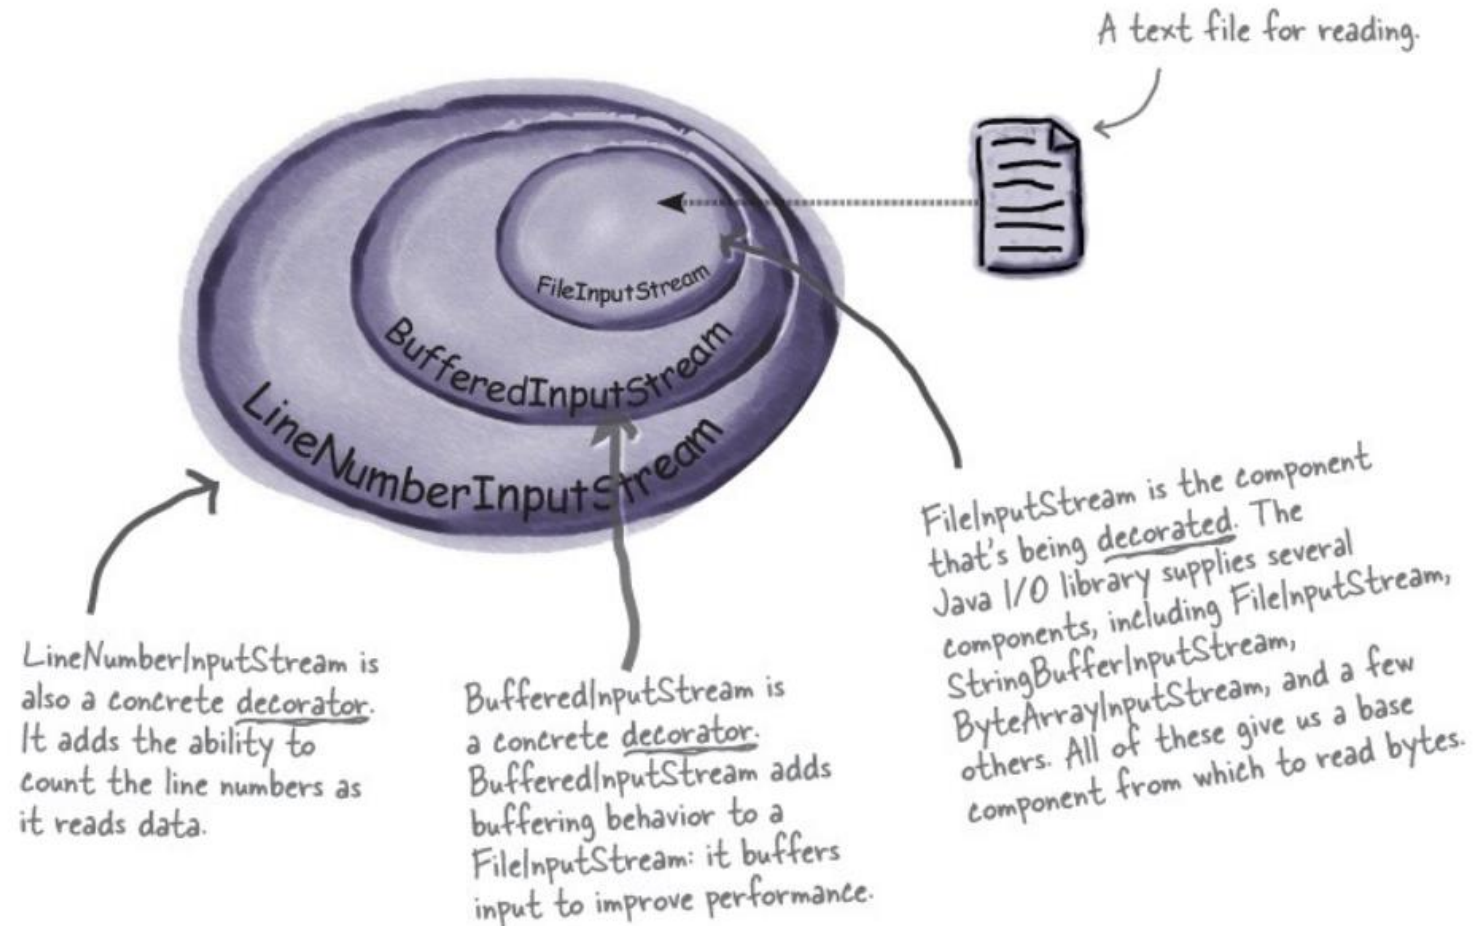 A text file for reading.
FileInputStream
BufferedInputStream
LineNumberInputStream
LineNumberInputStream is
also a concrete decorator.
It adds the ability to
count the line numbers as
it reads data.
BufferedInputStream is
a concrete decorator.
BufferedInputStream adds
buffering behavior to a
FileInputStream: it buffers
input to improve performance.
FileInputStream is the component
that's being decorated. The
Java I/O library supplies several
components, including FileInputStream,
StringBufferInputStream,
ByteArrayInputStream, and a few
others. All of these give us a base
component from which to read bytes.